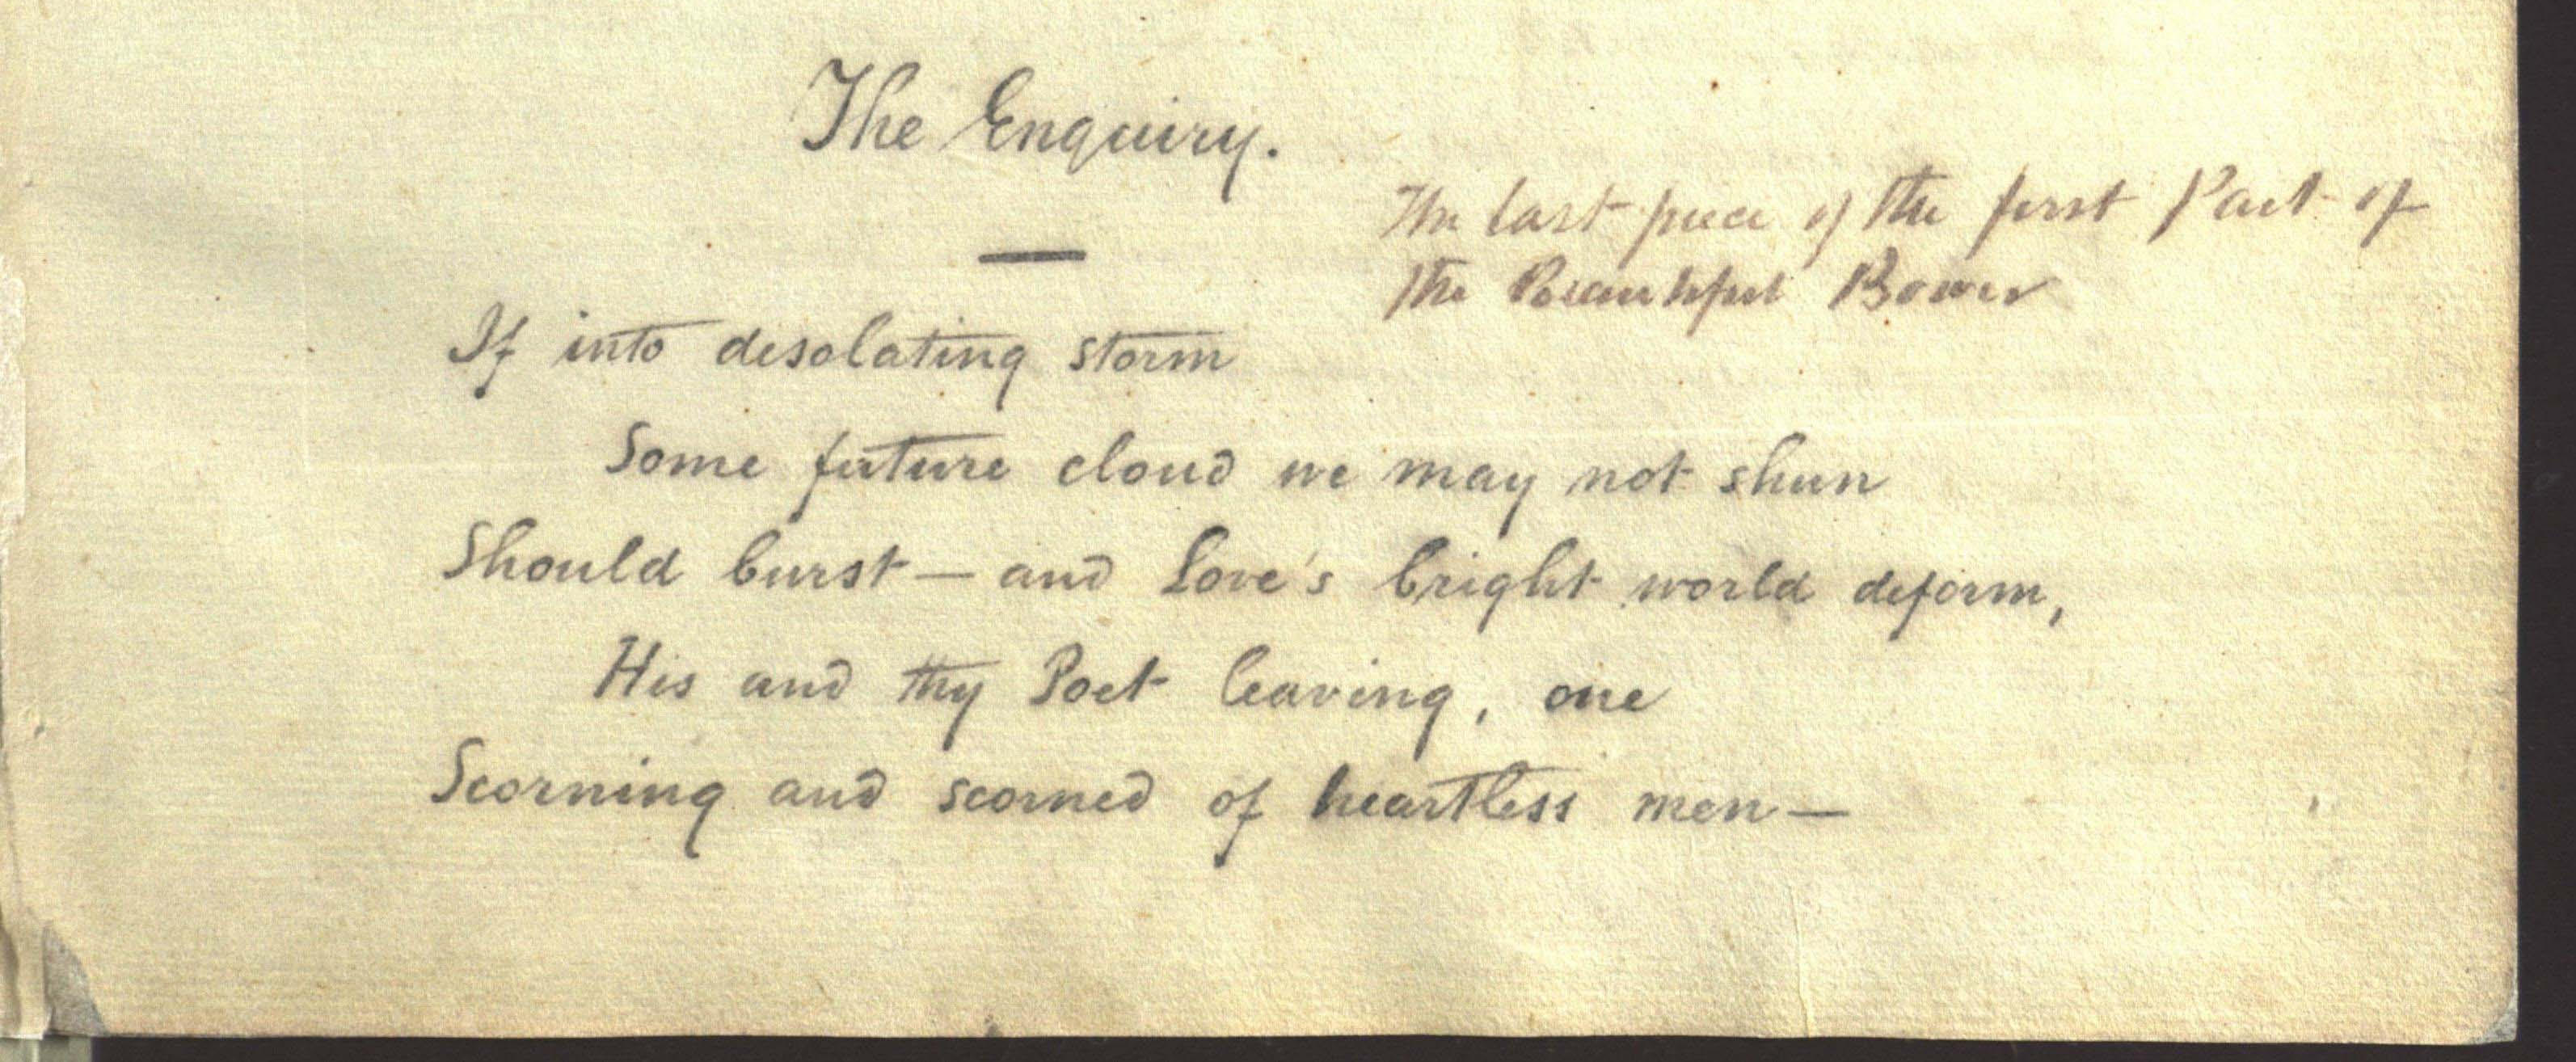 The Enquiry.
The last piece of the first Part of
the Beautiful Bower
If into desolating storm
Some future cloud we may not shun
Should burst — and Love's bright world deform,
His and thy Poet leaving, one
Scorning and scorned of heartless men —